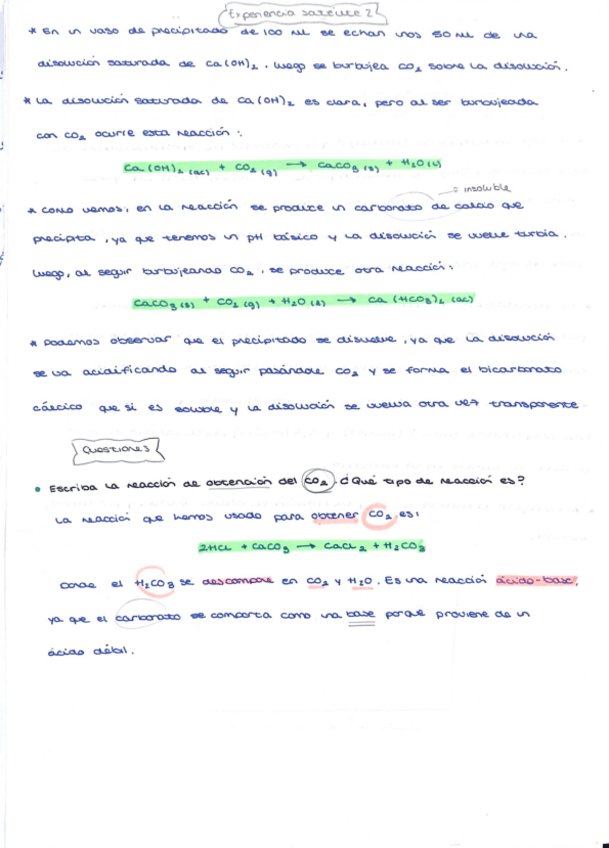 Experiencia satélite 2
* En un vaso de precipitado de 100 mL se echan unos 50 mL de una
disolución saturada de Ca(OH)₂. Luego se burbujea CO₂ sobre la disolución.
* La disolución saturada de Ca(OH)₂ es clara, pero al ser burbujeada
con CO₂ ocurre esta reacción:
Ca(OH)₂ (ac) + CO₂ (g) → CaCO₃ (s) + H₂O (l)
→ insoluble
* Como vemos, en la reacción se produce un carbonato de calcio que
precipita, ya que tenemos un pH básico y la disolución se vuelve turbia.
Luego, al seguir burbujeando CO₂, se produce otra reacción:
CaCO₃ (s) + CO₂ (g) + H₂O (l) → Ca(HCO₃)₂ (ac)
* Podemos observar que el precipitado se disuelve, ya que la disolución
se va acidificando al seguir pasándole CO₂ y se forma el bicarbonato
cálcico que si es soluble y la disolución se vuelva otra vez transparente
Cuestiones
• Escriba la reacción de obtención del CO₂. ¿Qué tipo de reacción es?
La reacción que hemos usado para obtener CO₂ es:
2HCl + CaCO₃ → CaCl₂ + H₂CO₃
donde el H₂CO₃ se descompone en CO₂ y H₂O. Es una reacción ácido-base,
ya que el carbonato se comporta como una base porque proviene de un
ácido débil.